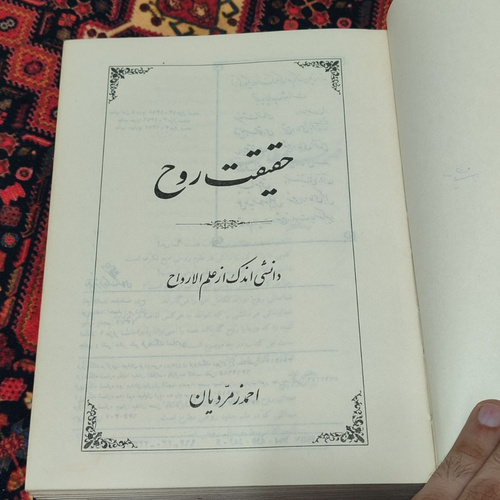 حقیقت روح
دانشی اندک از علم الارواح
احمد زمرّدیان